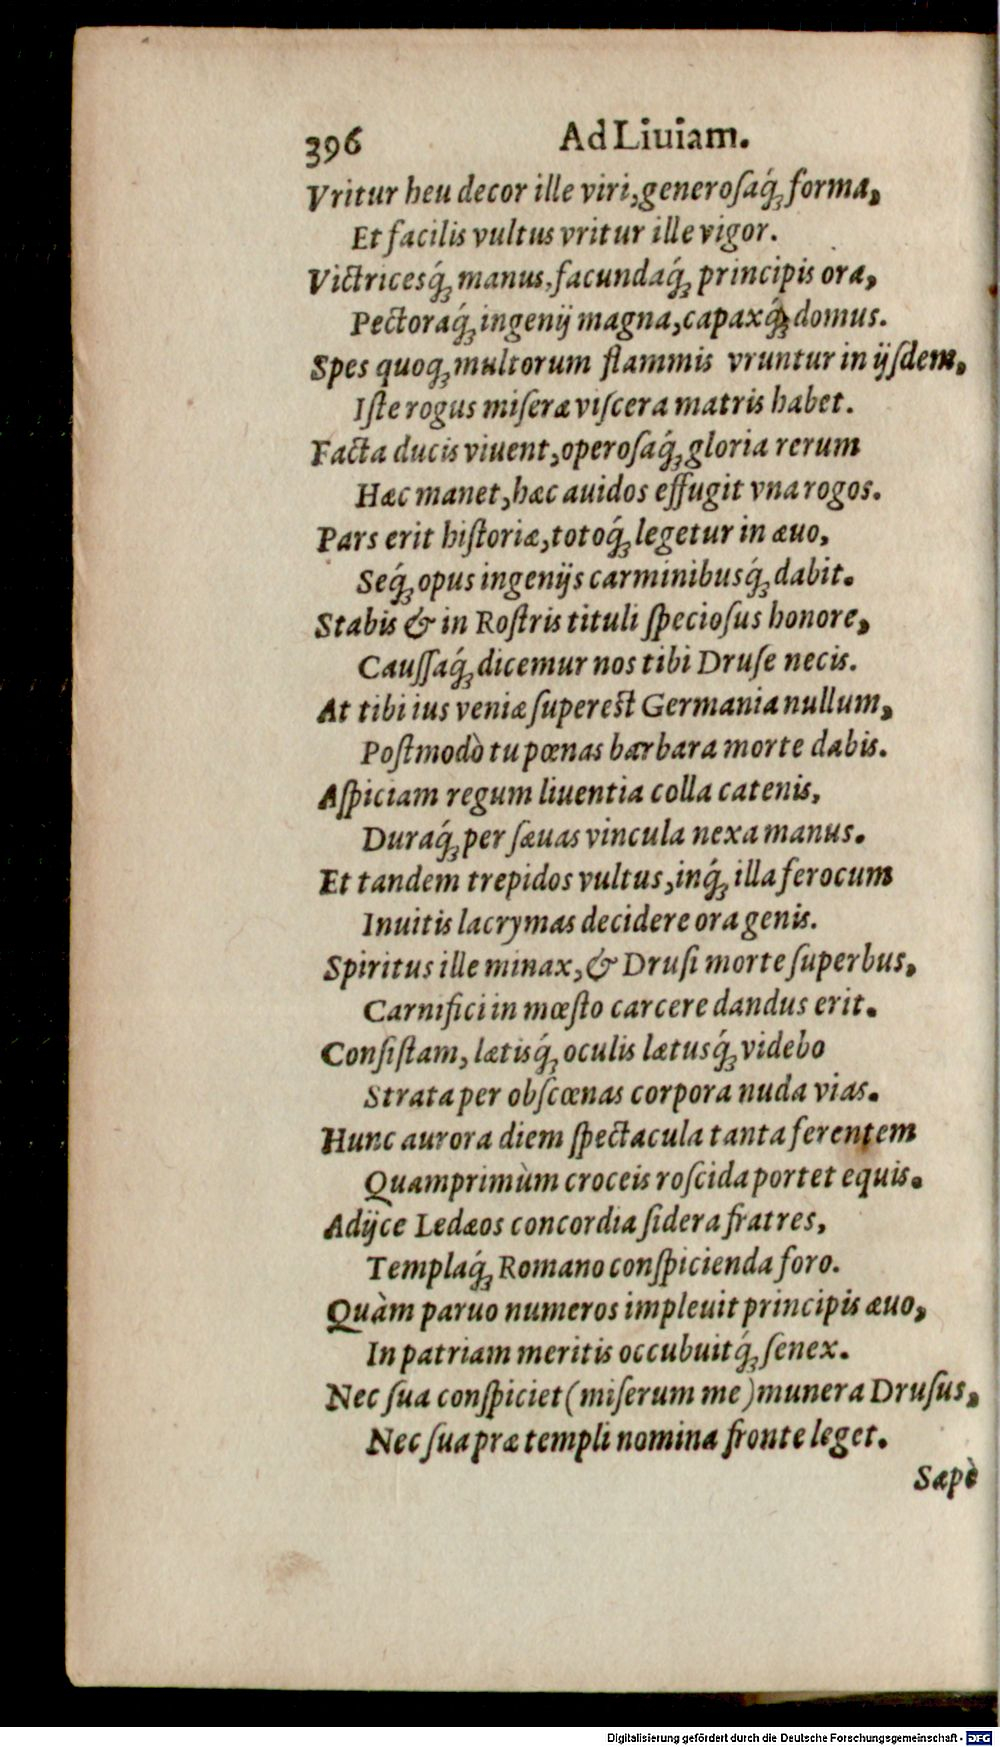 396 Ad Liuiam.
Vritur heu decor ille viri, generoſaq́; forma,
Et facilis vultus vritur ille vigor.
Victricesq́; manus, facundaq́; principis ora,
Pectoraq́; ingenij magna, capaxq́; domus.
Spes quoq; multorum flammis vruntur in ijſdem,
Iſte rogus miſeræ viſcera matris habet.
Facta ducis viuent, operoſaq́; gloria rerum
Hæc manet, hæc auidos effugit vna rogos.
Pars erit hiſtoriæ, totoq́; legetur in æuo,
Seq́; opus ingenijs carminibusq́; dabit.
Stabis & in Roſtris tituli ſpecioſus honore,
Cauſſaq́; dicemur nos tibi Druſe necis.
At tibi ius veniæ ſupereſt Germania nullum,
Poſtmodò tu pœnas barbara morte dabis.
Aſpiciam regum liuentia colla catenis,
Duraq́; per ſæuas vincula nexa manus.
Et tandem trepidos vultus, inq́; illa ferocum
Inuitis lacrymas decidere ora genis.
Spiritus ille minax, & Druſi morte ſuperbus,
Carnifici in mœſto carcere dandus erit.
Conſiſtam, lætisq́; oculis lætusq́; videbo
Strata per obſcœnas corpora nuda vias.
Hunc aurora diem ſpectacula tanta ferentem
Quamprimùm croceis roſcida portet equis.
Adijce Ledæos concordia ſidera fratres,
Templaq́; Romano conſpicienda foro.
Quàm paruo numeros impleuit principis æuo,
In patriam meritis occubuitq́; ſenex.
Nec ſua conſpiciet (miſerum me) munera Druſus,
Nec ſua præ templi nomina fronte leget.
Sæpè
Digitalisierung gefördert durch die Deutsche Forschungsgemeinschaft - DFG